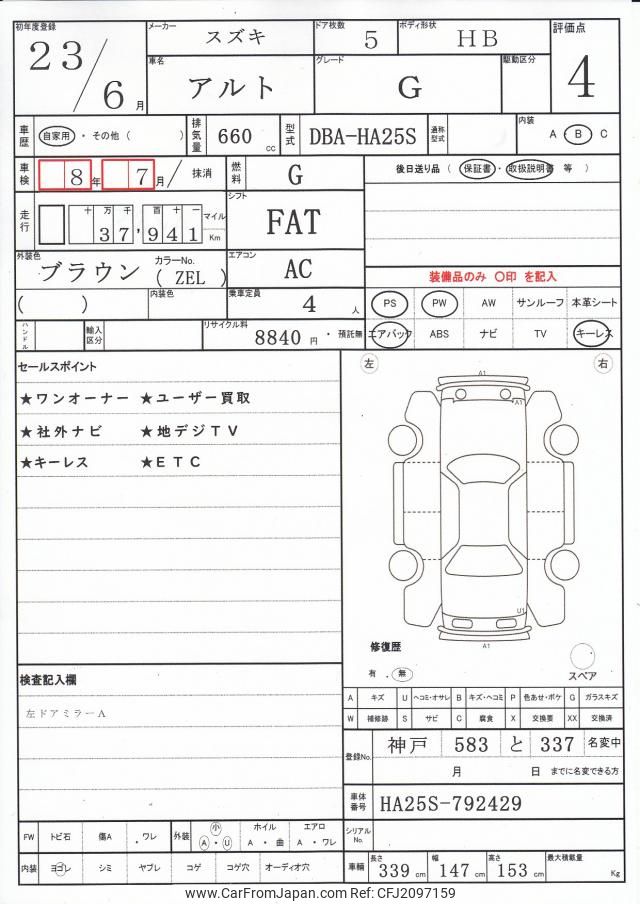 初年度登録 メーカー スズキ ドア枚数 5 ボディ形状 HB 評価点
23/6月 車名 アルト グレード G 駆動区分 4
車歴 自家用・その他( ) 排気量 660 cc 型式 DBA-HA25S 通称型式 内装 A・B C
車検 8年 7月/ 抹消 燃料 G 後日送り品(保証書・取扱説明書 等)
走行 十万千百十一 37,941 マイル Km シフト FAT
外装色 ブラウン カラーNo. (ZEL) エアコン AC 装備品のみ 〇印 を記入
( ) 内装色 乗車定員 4人 PS PW AW サンルーフ 本革シート
ハンドル 輸入区分 リサイクル料 8840円・預託無 エアバック ABS ナビ TV キーレス
セールスポイント 左 右
★ワンオーナー ★ユーザー買取 A1 A1
★社外ナビ ★地デジTV
★キーレス ★ETC
U1
A1
修復歴
有・無 スペア
検査記入欄
左ドアミラーA
A キズ U ヘコミ・オサレ B キズ・ヘコミ P 色あせ・ボケ G ガラスキズ
W 補修跡 S サビ C 腐食 X 交換要 XX 交換済
登録No. 神戸 583 と 337 名変中
月 日 までに名変できる方
車体番号 HA25S-792429
FW トビ石 傷A ・ワレ 外装 小 A・U ホイル A・曲 エアロ A・ワレ シリアルNo.
内装 ヨゴレ シミ ヤブレ コゲ コゲ穴 オーディオ穴 車輌 長さ 339cm 幅 147cm 高さ 153cm 最大積載量 Kg
www.CarFromJapan.com Ref: CFJ2097159